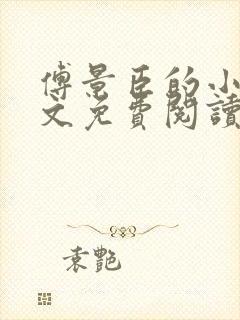 傅景臣的小
文免費閱讀
袁艷